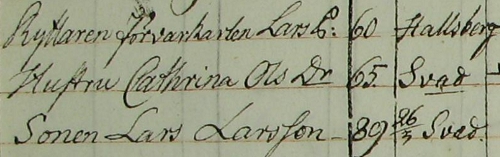 Ryttaren förvarkarlen Lars P: 60 Hallsberg
Hustru Cathrina Ols Dr 65. Svad
Sonen Lars Larsson - 89 26/3 Svad.